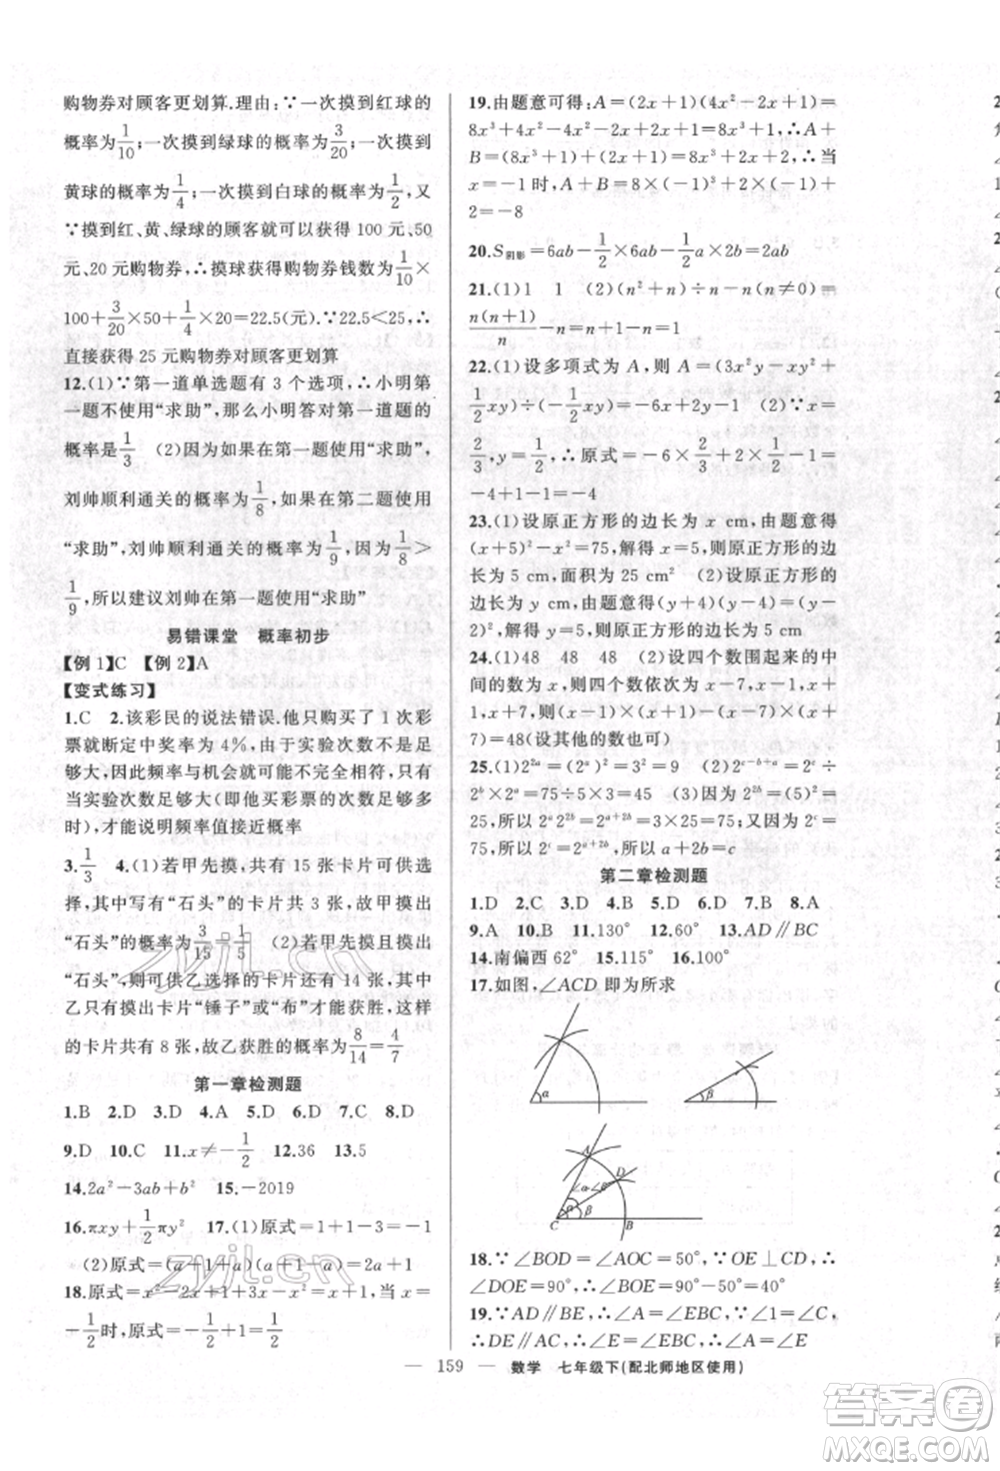 购物券对顾客更划算.理由:∵一次摸到红球的
概率为1/10;一次摸到绿球的概率为3/20;一次摸到
黄球的概率为1/4;一次摸到白球的概率为1/2,又
∵摸到红、黄、绿球的顾客就可以获得 100 元、50
元、20 元购物券,∴摸球获得购物券钱数为1/10×
100+3/20×50+1/4×20=22.5(元).∵22.5<25,∴
直接获得 25 元购物券对顾客更划算
12.(1)∵第一道单选题有 3 个选项,∴小明第
一题不使用“求助”,那么小明答对第一道题的
概率是1/3 (2)因为如果在第一题使用“求助”,
刘帅顺利通关的概率为1/8,如果在第二题使用
“求助”,刘帅顺利通关的概率为1/9,因为1/8>
1/9,所以建议刘帅在第一题使用“求助”
易错课堂 概率初步
【例 1】C 【例 2】A
【变式练习】
1.C 2.该彩民的说法错误.他只购买了 1 次彩
票就断定中奖率为 4%,由于实验次数不足
够大,因此频率与机会就可能不完全相符,只有
当实验次数足够大(即他买彩票的次数足够多
时),才能说明频率值接近概率
3.1/3 4.(1)若甲先摸,共有 15 张卡片可供选
择,其中写有“石头”的卡片共 3 张,故甲摸出
“石头”的概率为3/15=1/5 (2)若甲先摸且摸出
“石头”,则可供乙选择的卡片还有 14 张,其中
乙只有摸出卡片“锤子”或“布”才能获胜,这样
的卡片共 8 张,故乙获胜的概率为8/14=4/7
第一章检测题
1.B 2.D 3.D 4.A 5.D 6.D 7.C 8.D
9.D 10.C 11.x≠-1/2 12.36 13.5
14.2a²-3ab+b² 15.-2019
16.πxy+1/2πx² 17.(1)原式=1+1-3=-1
(2)原式=(a+1+a)(a+1-a)=2a+1
18.原式=x²-2x+1+3x-x²=x+1,当 x=
-1/2时,原式=-1/2+1=1/2
19.由题意可得:A=(2x+1)(4x²-2x+1)=
8x³+4x²-4x²-2x+2x+1=8x³+1,∴A+
B=(8x³+1)+(-1-2x)=8x³-2x,∴当
x=-1时,A+B=8×(-1)³-2×(-1)=-8+2
=-8
20.S阴影=6ab-1/2×6ab-1/2a×2b=2ab
21.(1)1 1 (2)(n²+n)÷n-n(n≠0)=
n(n+1)/n-n=n+1-n=1
22.(1)设多项式为 A,A=(3x²y-xy²+
1/2xy)÷(-1/2xy)=-6x+2y-1 (2)∵x=
2/3,y=1/2,∴原式=-6×2/3+2×1/2-1=
-4+1-1=-4
23.(1)设原正方形的边长为 x cm,由题意得
(x+5)²-x²=75,解得x=5.则原正方形的边
长为 5 cm,面积为 25 cm² (2)设原正方形的
边长为 y cm,由题意得(y+2)(y-1)=(y-
2)²+10,解得 y=
24.(1)48 48 48 (2)设四个数围起来的中
间的数为 x,则四个数依次为 x-7,x-1,x+
1,x+7,则(x-1)×(x+1)-(x-7)×(x+7)
=48(设其他的数也可)
25.(1)2²ᵃ=(2ᵃ)²=3²=9
第二章检测题
1.D 2.C 3.D 4.B 5.D 6.D 7.B 8.A
9.A 10.B 11.130° 12.60° 13.AD∥BC
14.南偏西 62° 15.115° 16.100°
17.如图,∠ACD 即为所求
α
β
A
D
∠α-∠β
β
C
B
18.∵∠BOD=∠AOC=50°,∵OE⊥CD,∴
∠DOE=90°,∴∠BOE=90°-50°=40°
19.∵AD∥BE,∴∠A=∠EBC,∵∠1=∠C,
∴DE∥AC,∴∠E=∠EBC,∴∠A=∠E
— 159 — 数学 七年级下(配北师地区使用)
zyjl.cn
zyjl.cn
答案圈
MXQE.COM